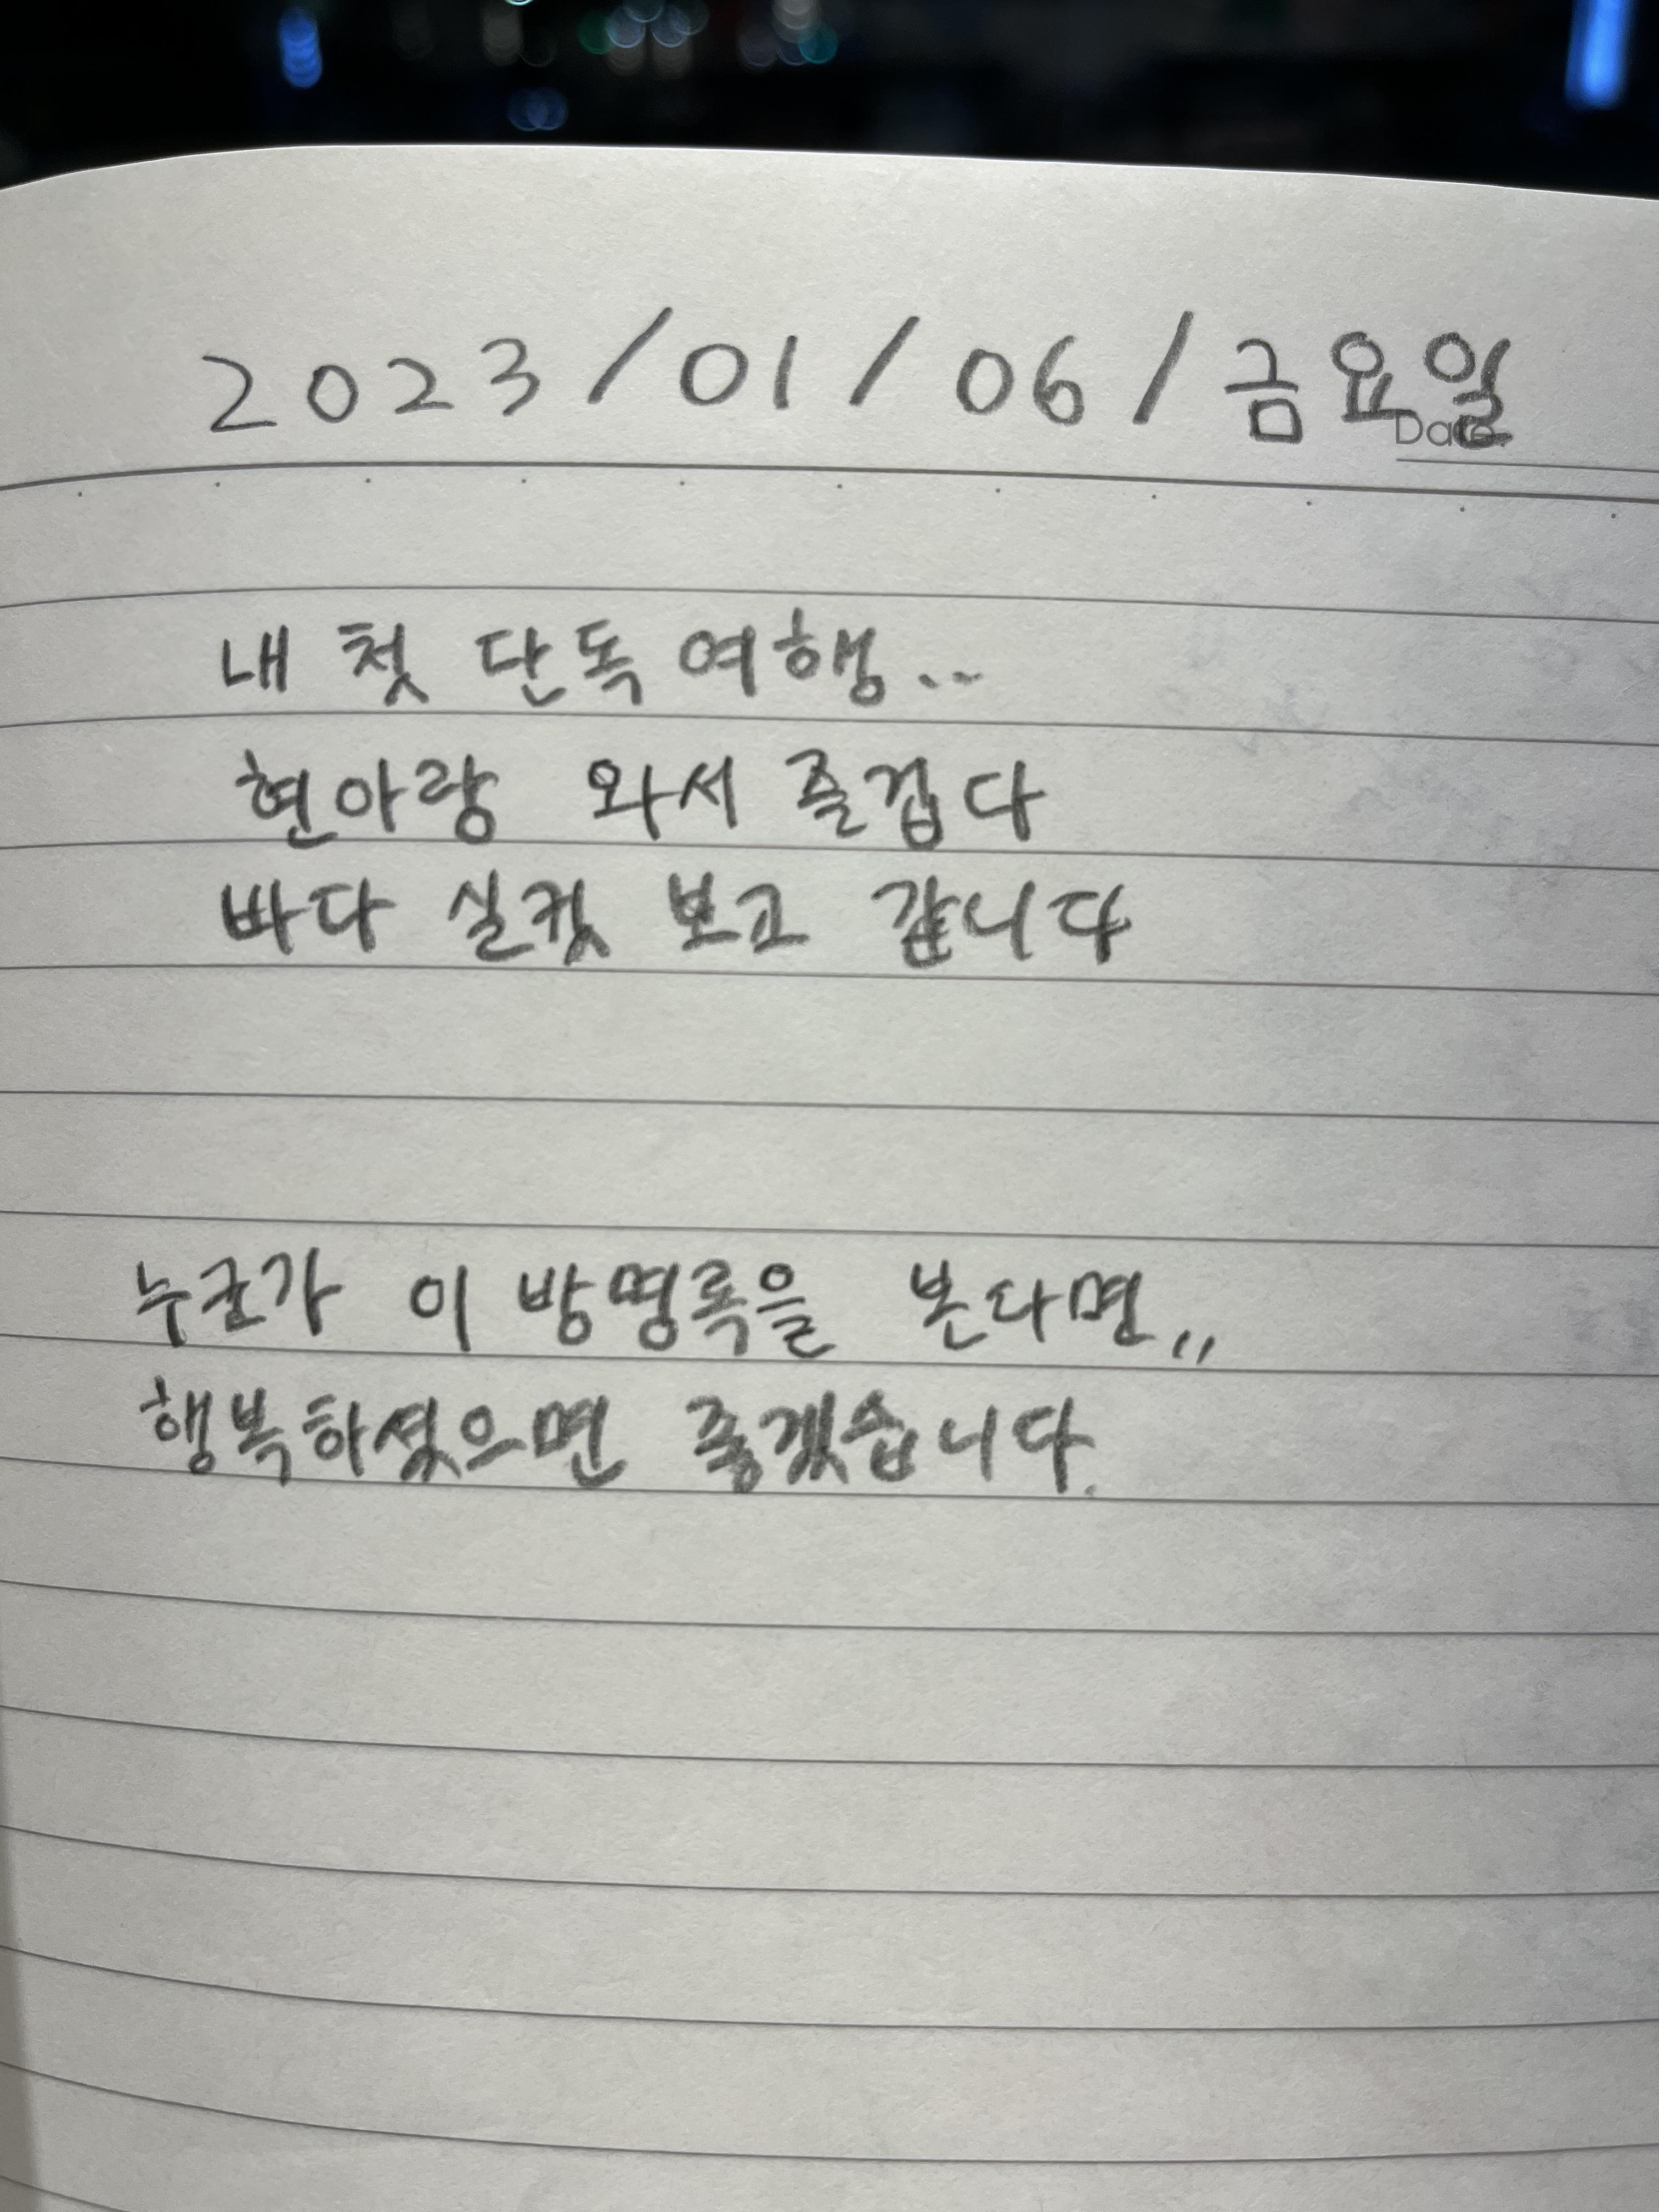 2023/01/06/금요일
Date.
내 첫 단독 여행...
현아랑 와서 즐겁다
바다 실컷 보고 갑니다
누군가 이 방명록을 본다면,,
행복하셨으면 좋겠습니다.